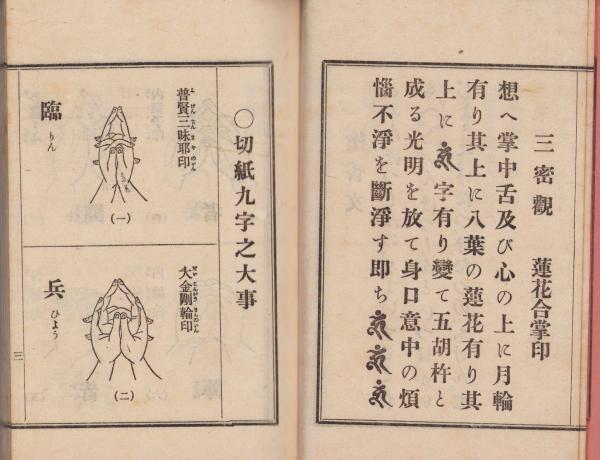 三密觀　蓮花合掌印
想へ掌中舌及び心の上に月輪
有り其上に八葉の蓮花有り其
上に字有り變て五胡杵と
成る光明を放て身口意中の煩
惱不淨を斷淨す即ち
〇切紙九字之大事
普賢三昧耶印
臨
りん
(一)
大金剛輪印
兵
ひよう
(二)
三